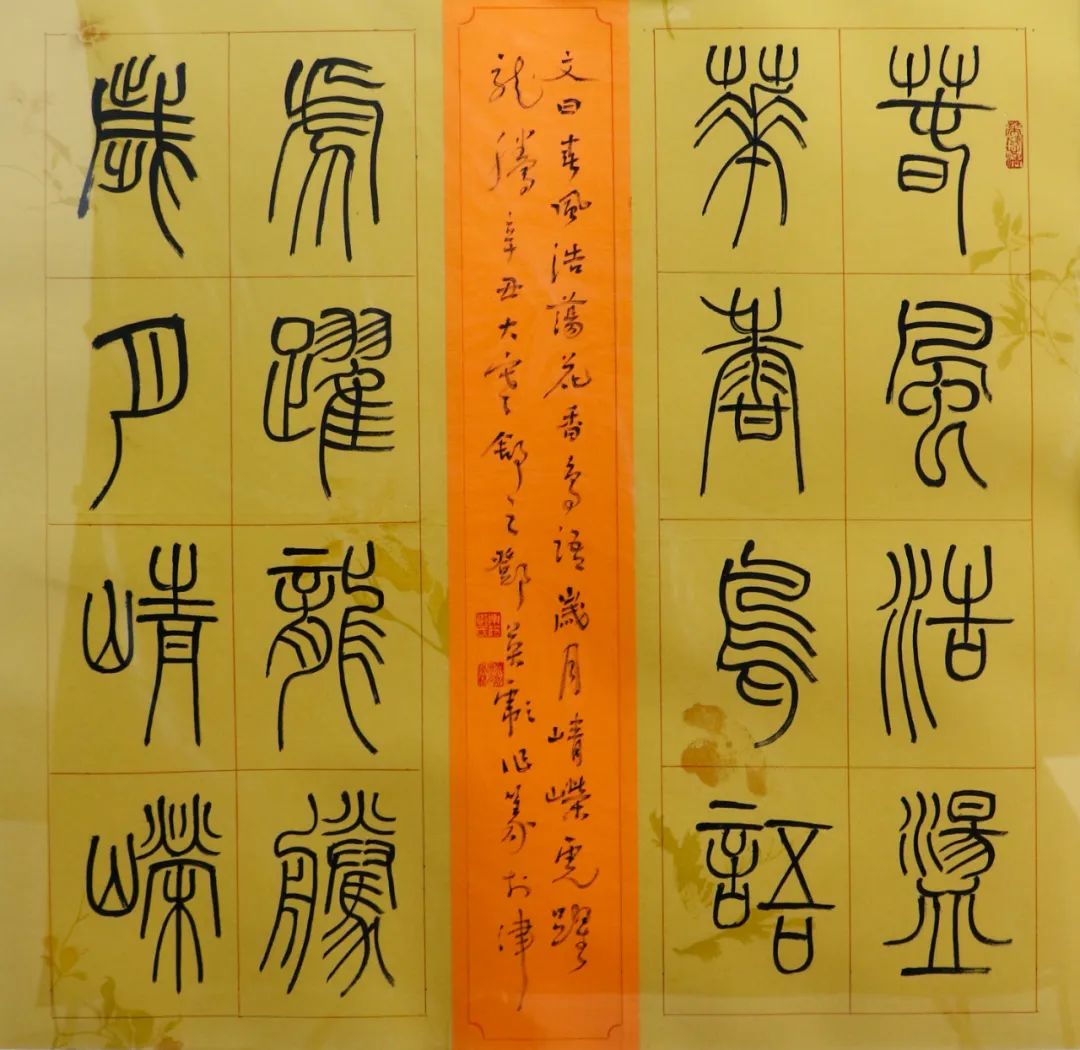 萅風浩盪
華香鳥語
文曰春風浩蕩花香鳥語歲月崝嶸虎躍
龍騰辛丑大寒舒之鄧英作篆於津
虎躍龍騰
歲月崝嶸